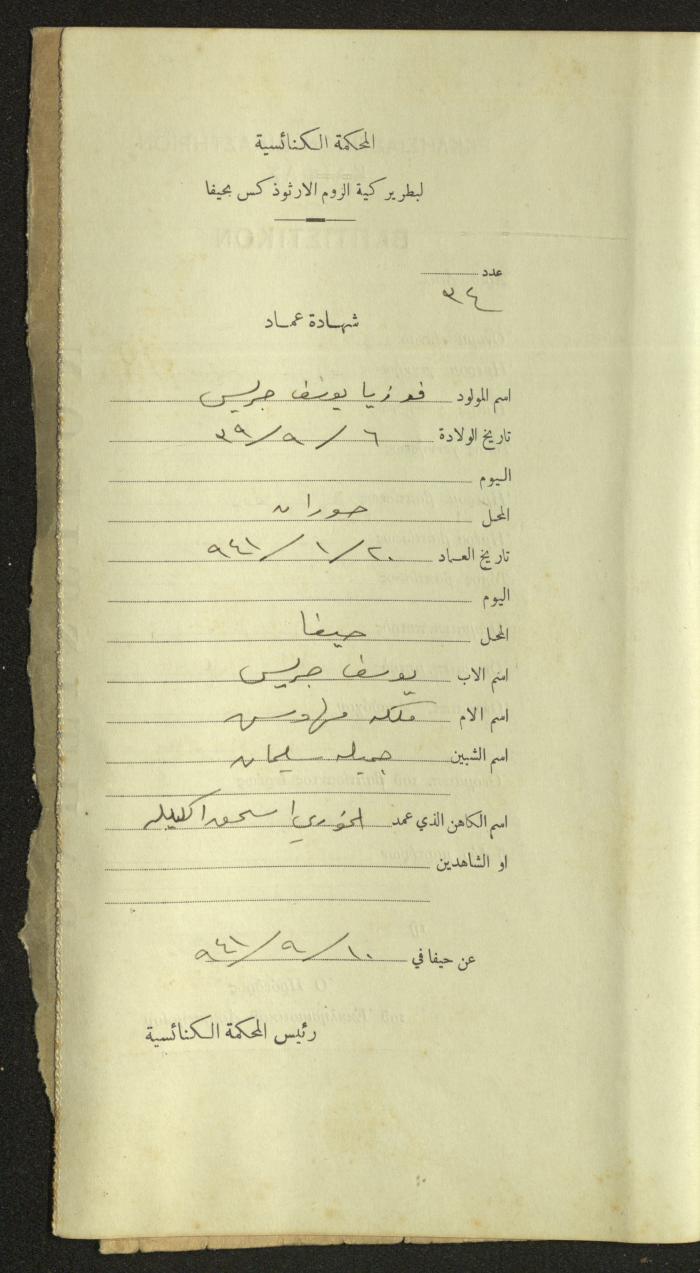 المحكمة الكنائسية
لبطريركية الروم الارثوذكس بحيفا
عدد
٣٤
شهادة عماد
اسم المولود فوزيا يوسف جريس
تاريخ الولادة ٦ / ٩ / ٣٩
اليوم
المحل حوران
تاريخ العماد ٢٠ / ١ / ٩٤١
اليوم
المحل حيفا
اسم الاب يوسف جريس
اسم الام ملكه
اسم الشبين جميله سليمان
اسم الكاهن الذي عمد الخوري اسحق اكليله
او الشاهدين
عن حيفا في ١٠ / ٩ / ٩٤١
رئيس المحكمة الكنائسية